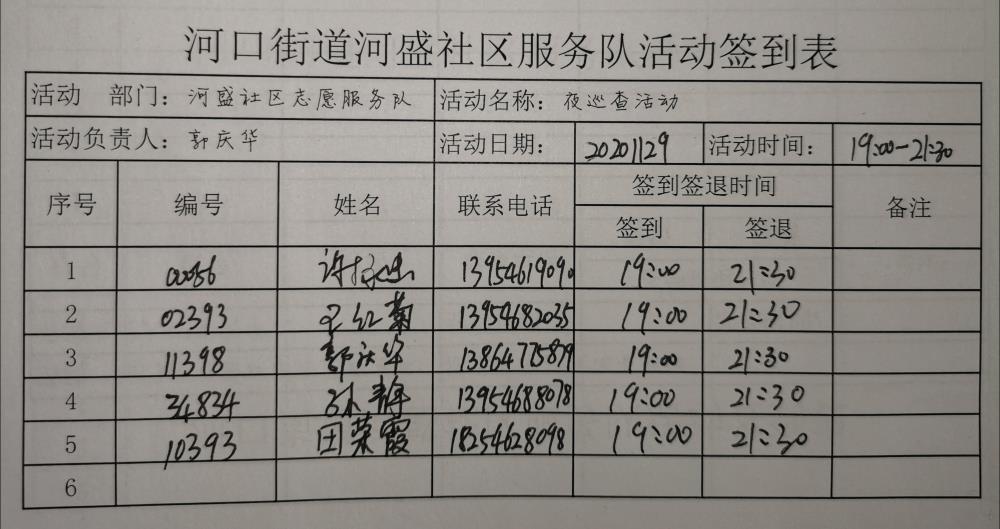 河口街道河盛社区服务队活动签到表
活动 部门：河盛社区志愿服务队 活动名称：夜巡查活动
活动负责人：郭庆华 活动日期：20201129 活动时间：19:00-21:30
序号 编号 姓名 联系电话 签到签退时间 备注
签到 签退
1 00056 13954619090 19:00 21:30
2 02393 王红菊 13954682035 19:00 21:30
3 11398 郭庆华 13864775879 19:00 21:30
4 34834 孙静 13954688078 19:00 21:30
5 10393 田荣霞 18254628098 19:00 21:30
6